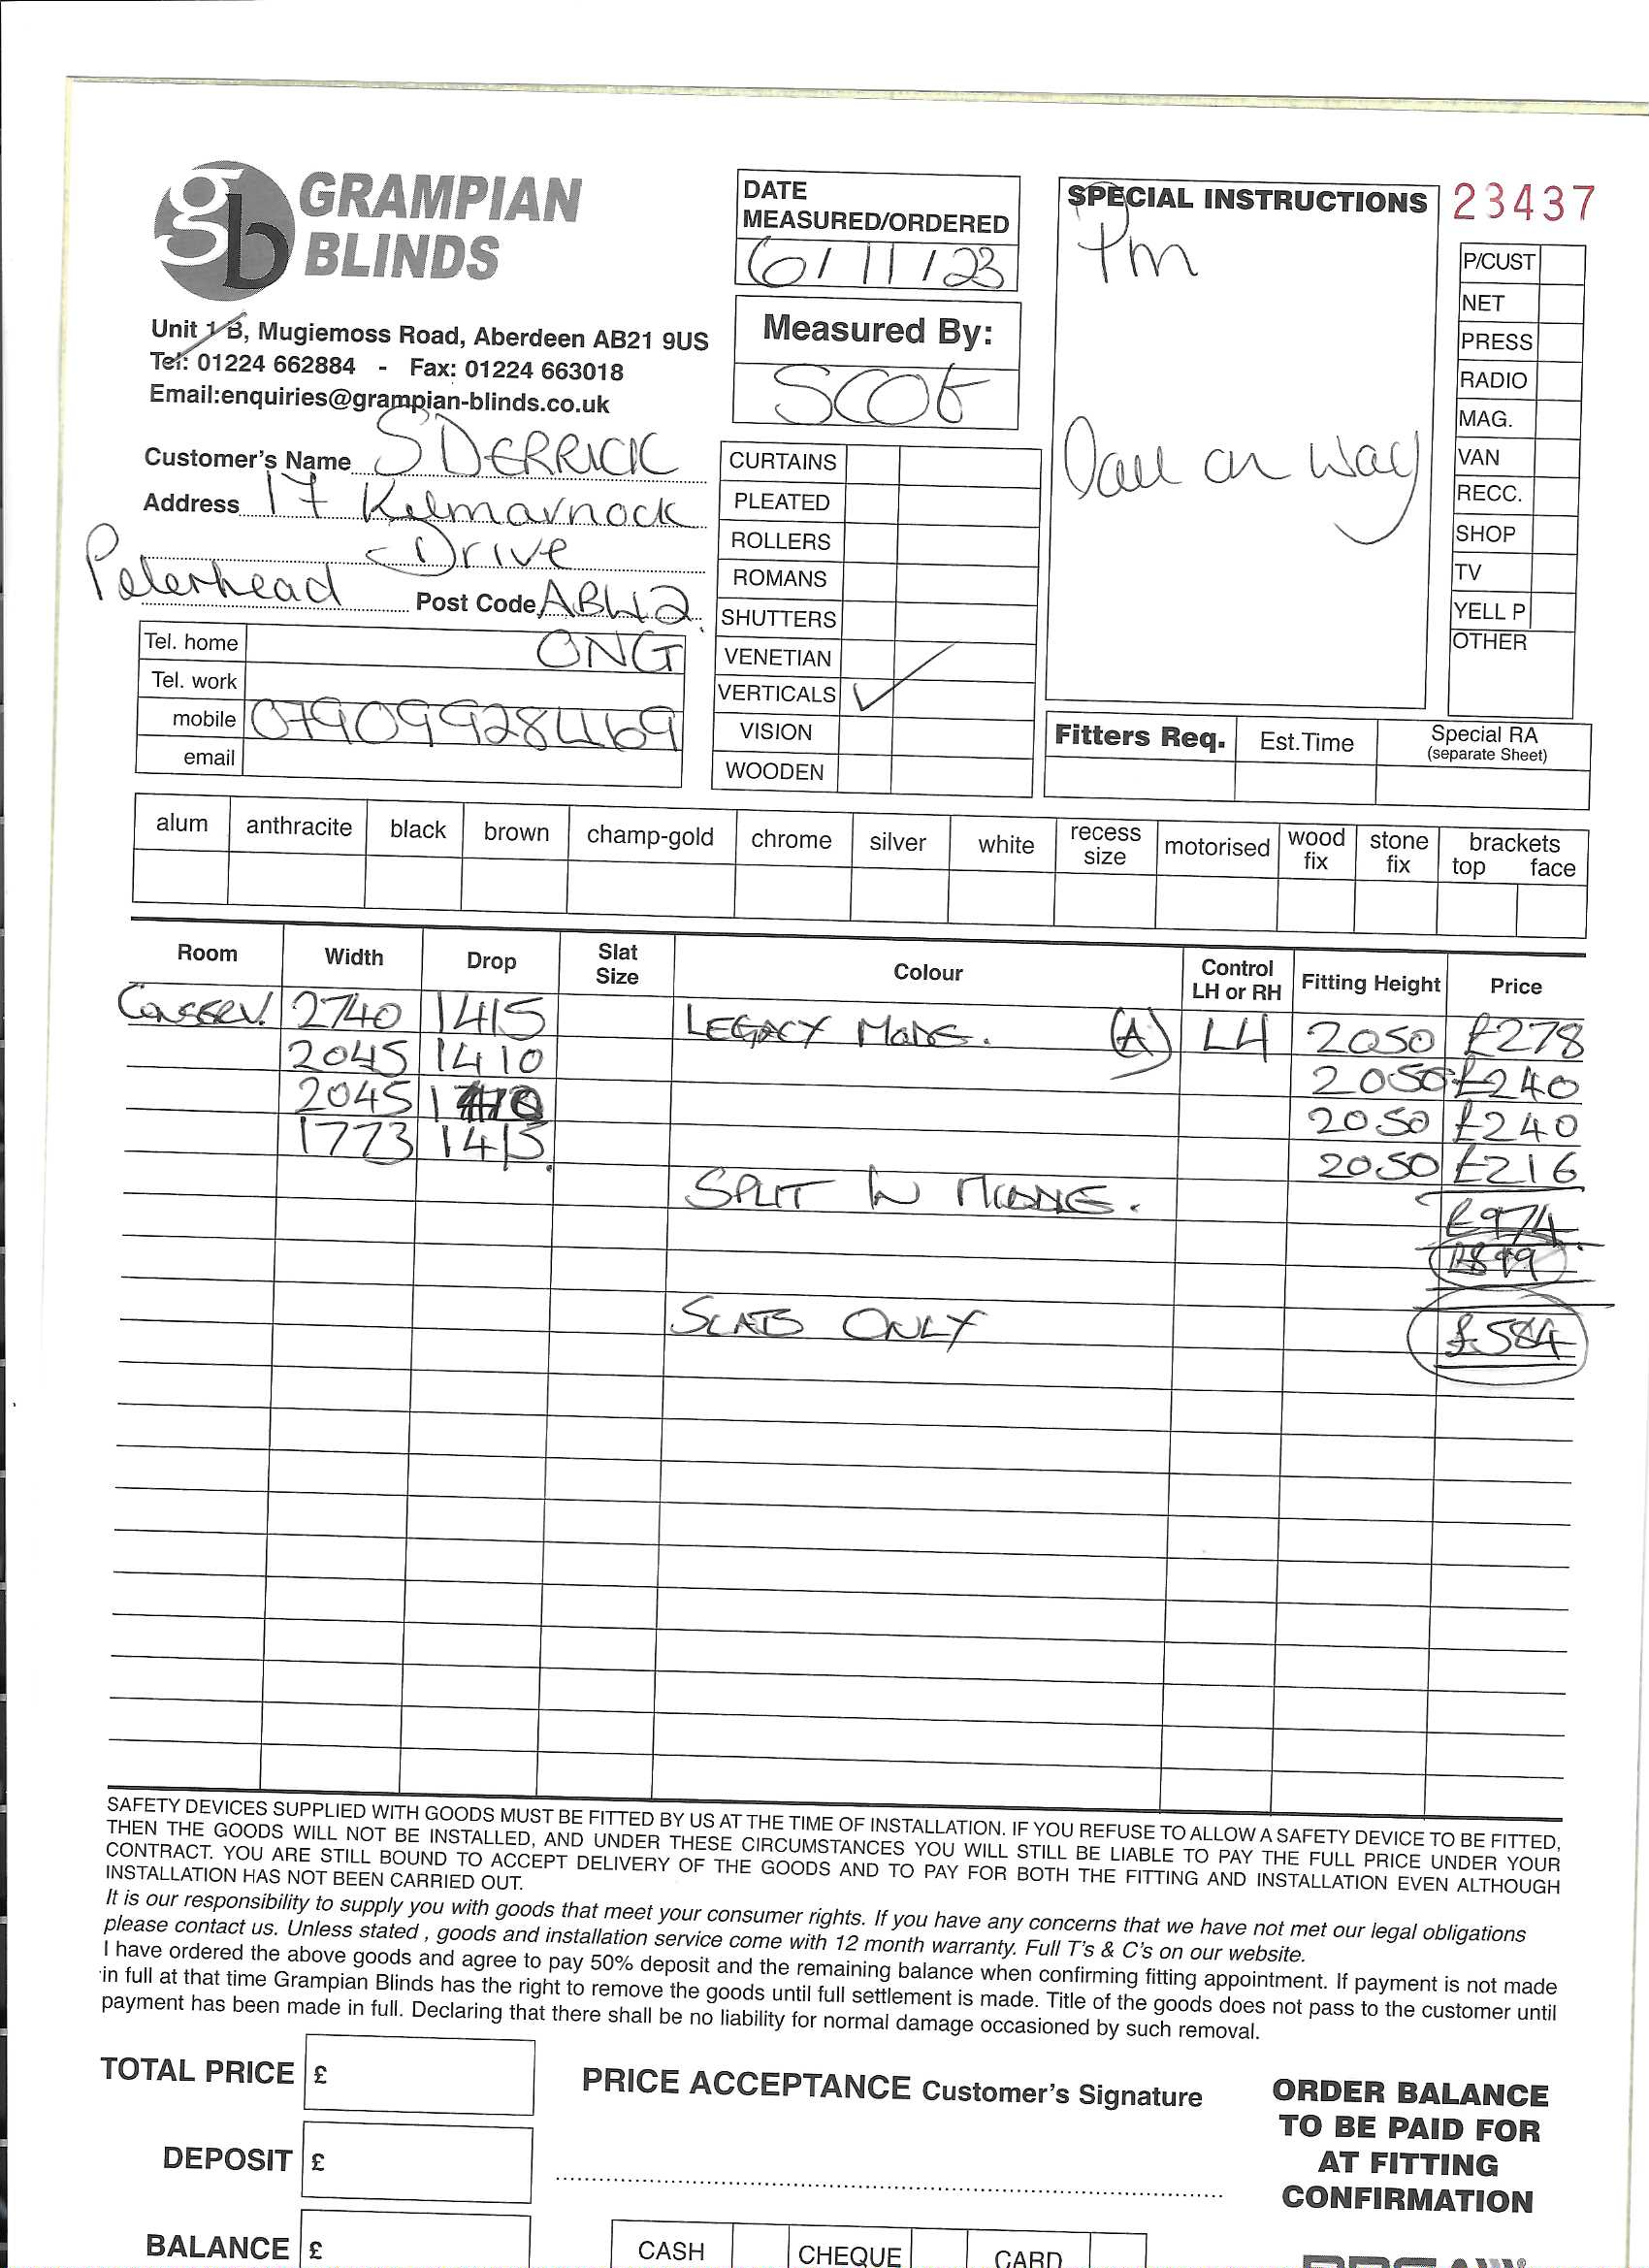 gb GRAMPIAN
BLINDS
Unit 1 B, Mugiemoss Road, Aberdeen AB21 9US
Tel: 01224 662884 - Fax: 01224 663018
Email:enquiries@grampian-blinds.co.uk
DATE
MEASURED/ORDERED
6/11/23
Measured By:
SPECIAL INSTRUCTIONS
Pm
Call on way
23437
P/CUST
NET
PRESS
RADIO
MAG.
VAN
RECC.
SHOP
TV
YELL P
OTHER
Customer's Name S DERRICK
Address 17 Kilmarnock
Drive
Peterhead Post Code AB42
0NG
Tel. home
Tel. work
mobile 07909928469
email
CURTAINS
PLEATED
ROLLERS
ROMANS
SHUTTERS
VENETIAN
VERTICALS ✓
VISION
WOODEN
Fitters Req. Est.Time Special RA
(separate Sheet)
alum anthracite black brown champ-gold chrome silver white recess size motorised wood fix stone fix brackets top face
Room Width Drop Slat Size Colour Control LH or RH Fitting Height Price
Conserv. 2740 1415 LEGACY (A) LH 2050 £278
2045 1410 2050 £240
2045 2050 £240
1773 1415 2050 £216
SPLIT IN MIDDLE. £974
£899
SLATS ONLY £584
SAFETY DEVICES SUPPLIED WITH GOODS MUST BE FITTED BY US AT THE TIME OF INSTALLATION. IF YOU REFUSE TO ALLOW A SAFETY DEVICE TO BE FITTED,
THEN THE GOODS WILL NOT BE INSTALLED, AND UNDER THESE CIRCUMSTANCES YOU WILL STILL BE LIABLE TO PAY THE FULL PRICE UNDER YOUR
CONTRACT. YOU ARE STILL BOUND TO ACCEPT DELIVERY OF THE GOODS AND TO PAY FOR BOTH THE FITTING AND INSTALLATION EVEN ALTHOUGH
INSTALLATION HAS NOT BEEN CARRIED OUT.
It is our responsibility to supply you with goods that meet your consumer rights. If you have any concerns that we have not met our legal obligations
please contact us. Unless stated , goods and installation service come with 12 month warranty. Full T's & C's on our website.
I have ordered the above goods and agree to pay 50% deposit and the remaining balance when confirming fitting appointment. If payment is not made
in full at that time Grampian Blinds has the right to remove the goods until full settlement is made. Title of the goods does not pass to the customer until
payment has been made in full. Declaring that there shall be no liability for normal damage occasioned by such removal.
TOTAL PRICE £
DEPOSIT £
BALANCE £
PRICE ACCEPTANCE Customer's Signature
CASH CHEQUE CARD
ORDER BALANCE
TO BE PAID FOR
AT FITTING
CONFIRMATION